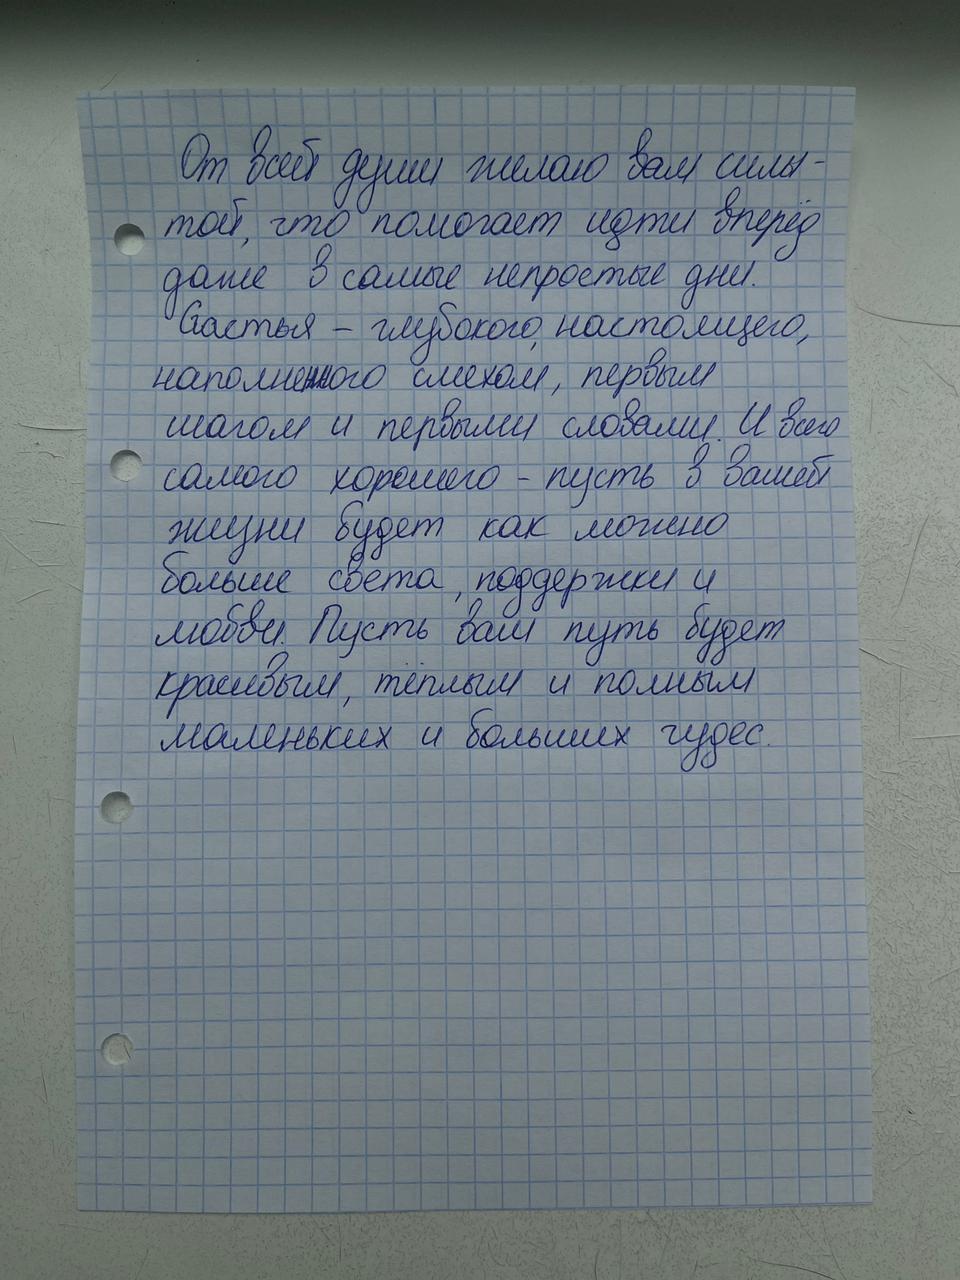 От всей души желаю вам силы -
той, что помогает идти вперёд
даже в самые непростые дни.
Счастья - глубокого, настоящего,
наполненного смехом, первым
шагом и первыми словами. И всего
самого хорошего - пусть в вашей
жизни будет как можно
больше света, поддержки и
любви. Пусть ваш путь будет
красивым, тёплым и полным
маленьких и больших чудес.